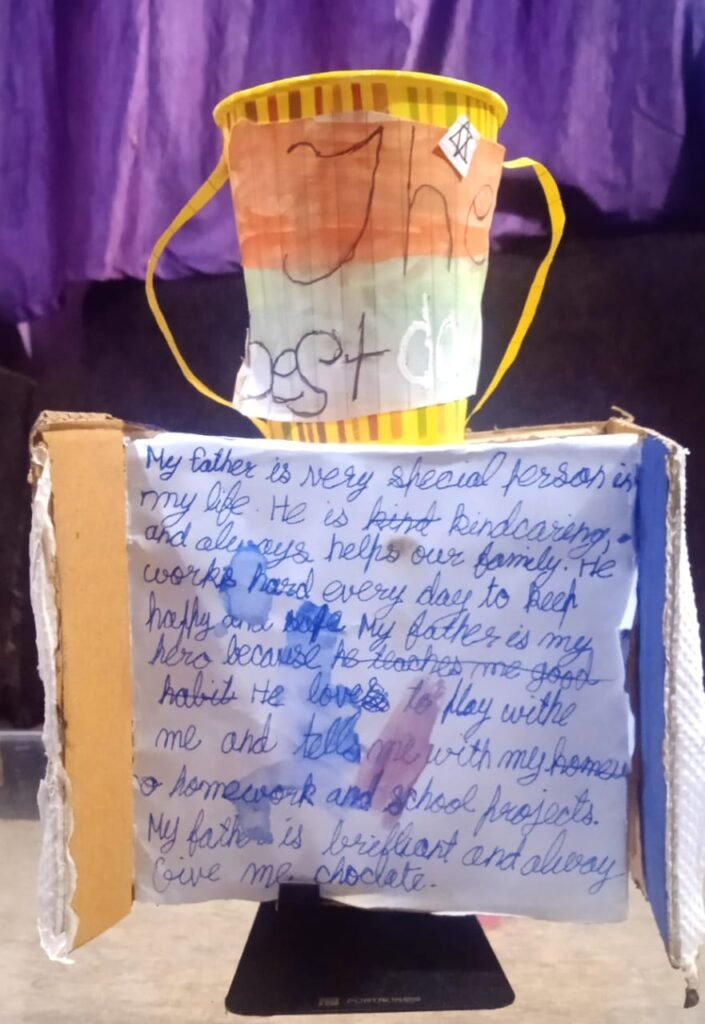 The
best da
My father is very special person in
my life. He is kind kindcaring,
and always helps our family. He
works hard every day to keep
happy and safe My father is my
hero because he teaches me good
habit He loves to play withe
me and tells me with my homew
o homework and school projects.
My father is briefliant and alway
Give me choclate.
PORTRONICS